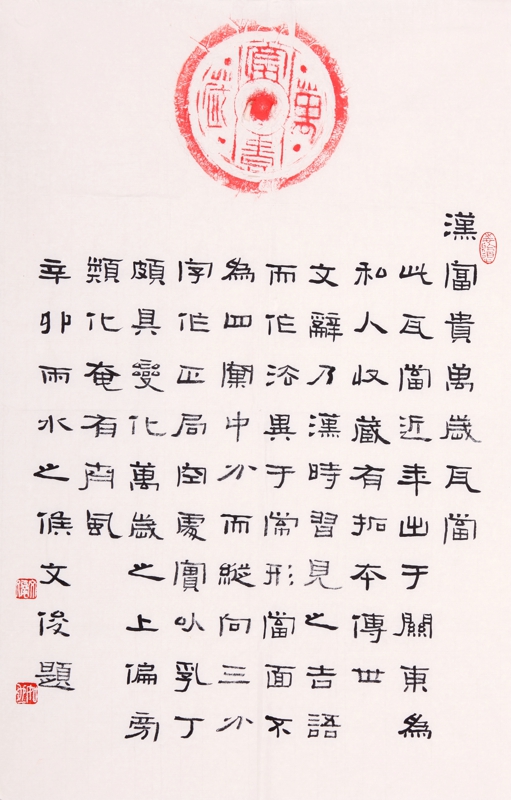 富貴萬歲
漢富貴萬歲瓦當
此瓦當近年出于關東為
和人收藏有拓本傳世
文辭乃漢時習見之吉語
而作法異于常形當面不
為四闌中分而縱向三分
字作正局空處實以乳丁
頗具變化萬歲之上偏旁
類化奄有風
辛卯雨水之候文俊題